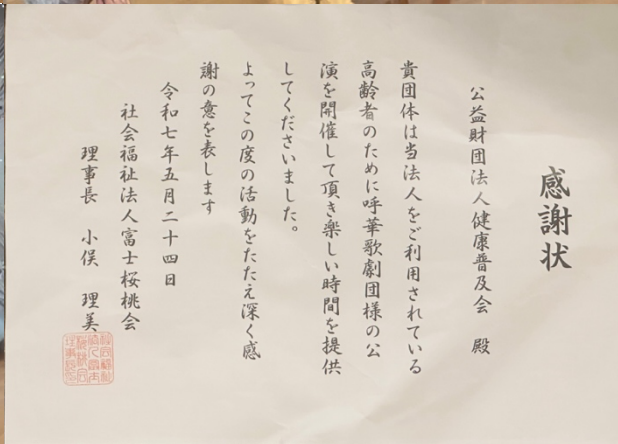 感謝状
公益財団法人健康普及会　殿
貴団体は当法人をご利用されている
高齢者のために呼華歌劇団様の公
演を開催して頂き楽しい時間を提供
してくださいました。
よってこの度の活動をたたえ深く感
謝の意を表します
令和七年五月二十四日
社会福祉法人富士桜桃会
理事長　小俣　理美